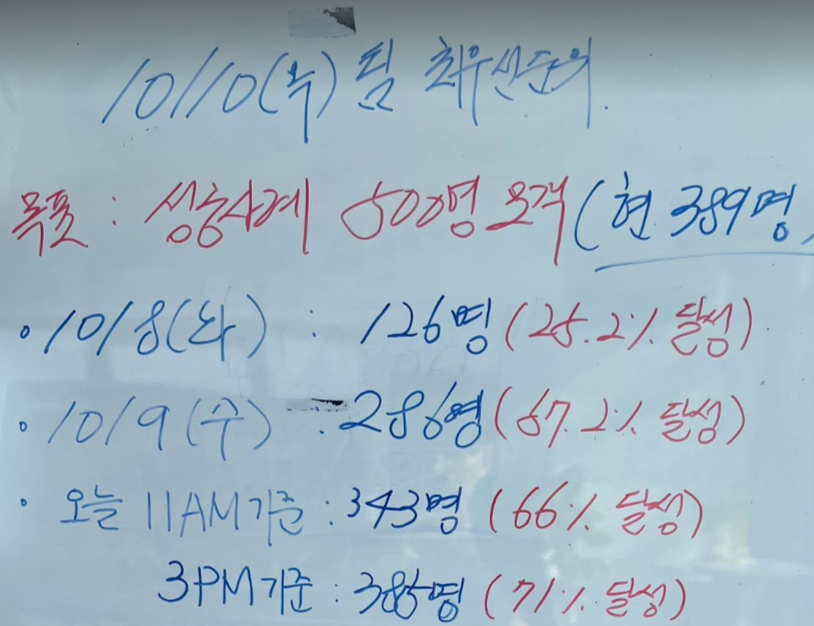 10/10(수) 팀 최우선순위.
목표 : 성층사례 500명 모객 (현 389명)
• 10/8(화) : 126명 (25.2% 달성)
• 10/9(수) : 286명 (67.2% 달성)
• 오늘 11AM기준 : 343명 (66% 달성)
3PM기준 : 385명 (71% 달성)